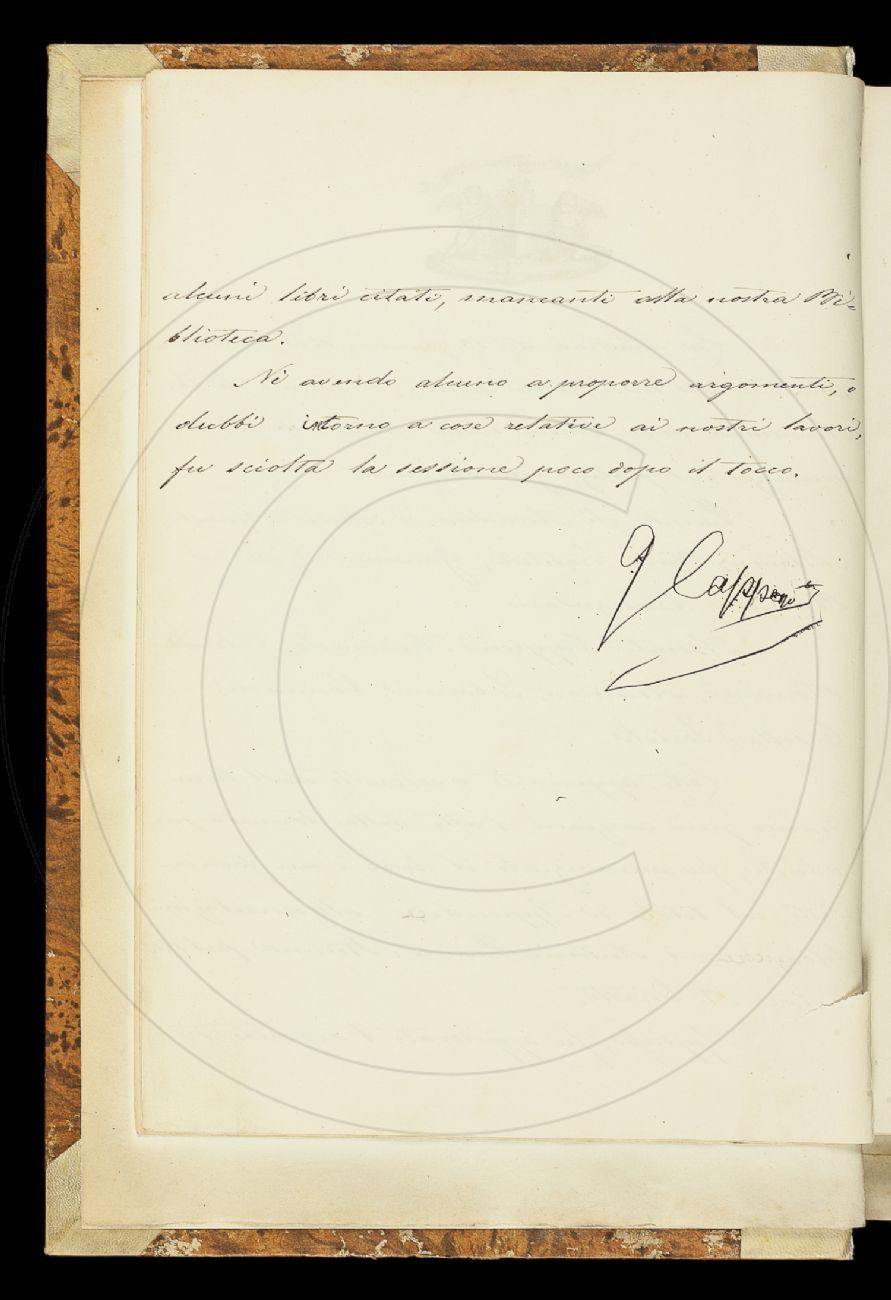 alcuni libri citati, mancanti alla nostra Bi=
blioteca.
Nè avendo alcuno a proporre argomenti, o
dubbi intorno a cose relative ai nostri lavori,
fu sciolta la sessione poco dopo il tocco.
G Capponi